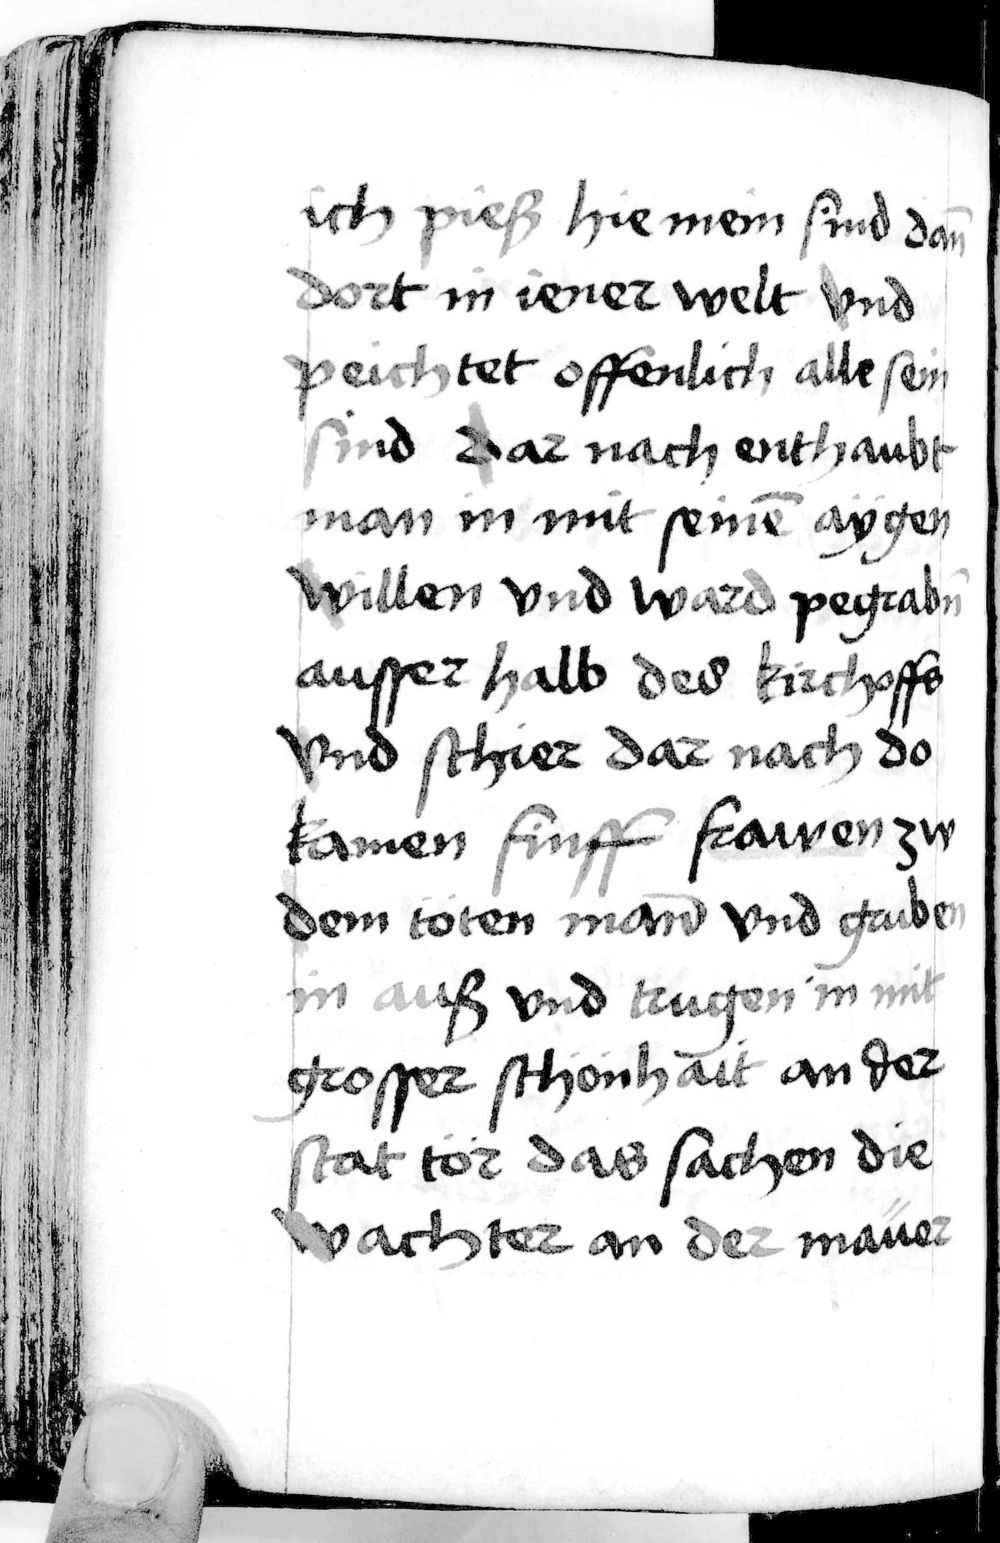 ich pieß hie mein sind dan̄
dort in iener welt vnd
peichtet offenlich alle sein
sind dar nach enthaubt
man in mit seinē aÿgen
willen vnd ward pegrabn̄
ausser halb des kirchoffs
vnd schier dar nach do
kamen finff frawen zw
dem töten man̄ vnd gruben
in auß vnd trugen in mit
grosser schönhait an der
stat tör das sachen die
wachter an der maüer